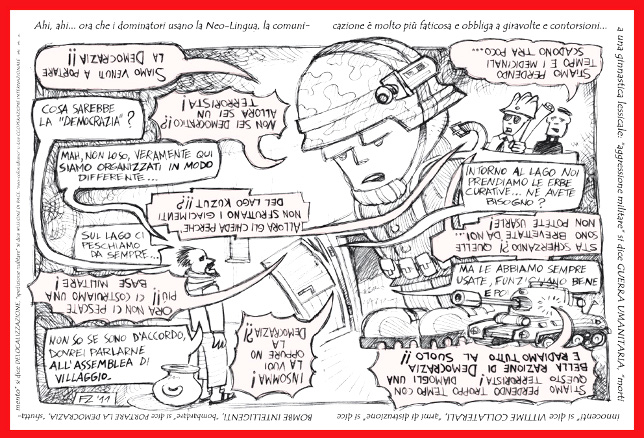 Ahi, ahi... ora che i dominatori usano la Neo-Lingua, la comuni-
cazione è molto più faticosa e obbliga a giravolte e contorsioni...
a una ginnastica lessicale: "aggressione militare" si dice GUERRA UMANITARIA, "morti
innocenti" si dice VITTIME COLLATERALI, "armi di distruzione" si dice
BOMBE INTELLIGENTI, "bombardare" si dice PORTARE LA DEMOCRAZIA, "sfrutta-
mento" si dice DELOCALIZZAZIONE,
SIAMO VENUTI A PORTARE
LA DEMOCRAZIA!!
COSA SAREBBE
LA "DEMOCRAZIA"?
NON SEI DEMOCRATICO!?
ALLORA SEI UN
TERRORISTA!
MAH, NON LO SO, VERAMENTE QUI
SIAMO ORGANIZZATI IN MODO
DIFFERENTE...
ALLORA GLI CHIEDA PERCHÈ
NON SFRUTTANO I GIACIMENTI
DEL LAGO KOZUT!!
SUL LAGO CI
PESCHIAMO
DA SEMPRE...
ORA NON CI PESCATE
PIÙ!! CI COSTRUIAMO UNA
BASE MILITARE!
NON SO SE SONO D'ACCORDO,
DOVREI PARLARNE
ALL'ASSEMBLEA DI
VILLAGGIO.
INSOMMA!
LA VUOI
OPPURE NO
LA DEMOCRAZIA?!
STIAMO PERDENDO
TEMPO E I MEDICINALI
SCADONO TRA POCO...
INTORNO AL LAGO NOI
PRENDIAMO LE ERBE
CURATIVE... NE AVETE
BISOGNO?
STA SCHERZANDO?! QUELLE
SONO BREVETTATE DA NOI...
NON POTETE USARLE!
MA LE ABBIAMO SEMPRE
USATE, FUNZIONANO BENE
E POI
STIAMO PERDENDO TROPPO TEMPO CON
QUESTO TERRORISTA! DIAMOGLI UNA
BELLA DI RAZIONE DI DEMOCRAZIA
E RADIAMO TUTTO AL SUOLO!!
FZ '11